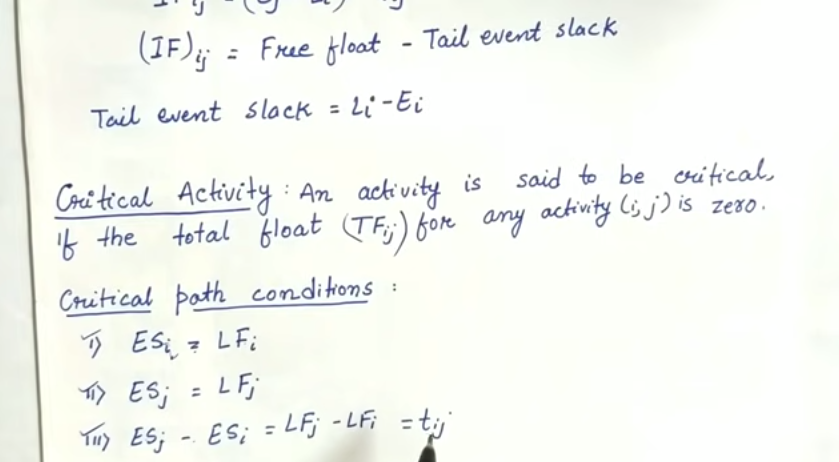 (IF)ij = Free float - Tail event slack
Tail event slack = Li - Ei
Critical Activity : An activity is said to be critical,
if the total float (TFij) for any activity (i, j) is zero.
Critical path conditions :
i) ESi = LFi
ii) ESj = LFj
iii) ESj - ESi = LFj - LFi = tij